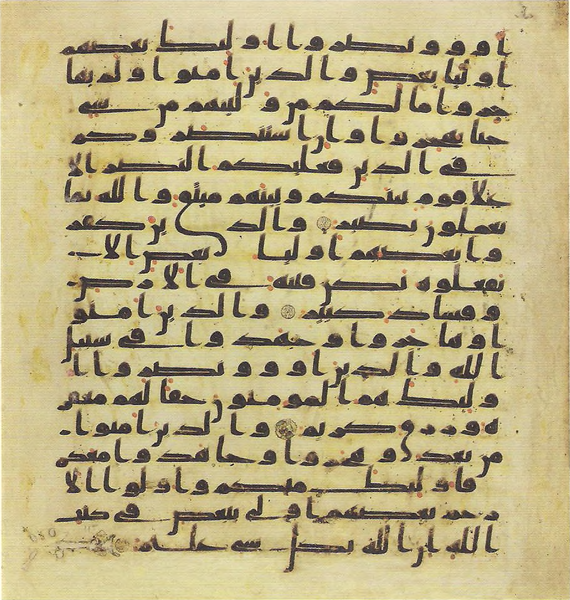 اووا ونصروا اولئك بعضهم
اوليا بعض والذين امنوا ولم يها
جروا ما لكم من وليتهم من شى
حتى يهجروا وان استنصروكم
فى الدين فعليكم النصر الا
على قوم بينكم وبينهم ميثق والله بما
تعملون بصير والذين كفر
وا بعضهم اوليا بعض الا
تفعلوه تكن فتنه فى الارض
وفساد كبير والذين امنو
ا وهاجروا وجهدوا فى سبيل
الله والذين اووا ونصروا ا
ولئك هم المومنون حقا لهم مغفر
ه ورزق كريم والذين امنوا
من بعد وهجروا وجهدوا معكم
فاولئك منكم واولوا الا
رحم بعضهم اولى ببعض فى كتب
الله ان الله بكل شى عليم